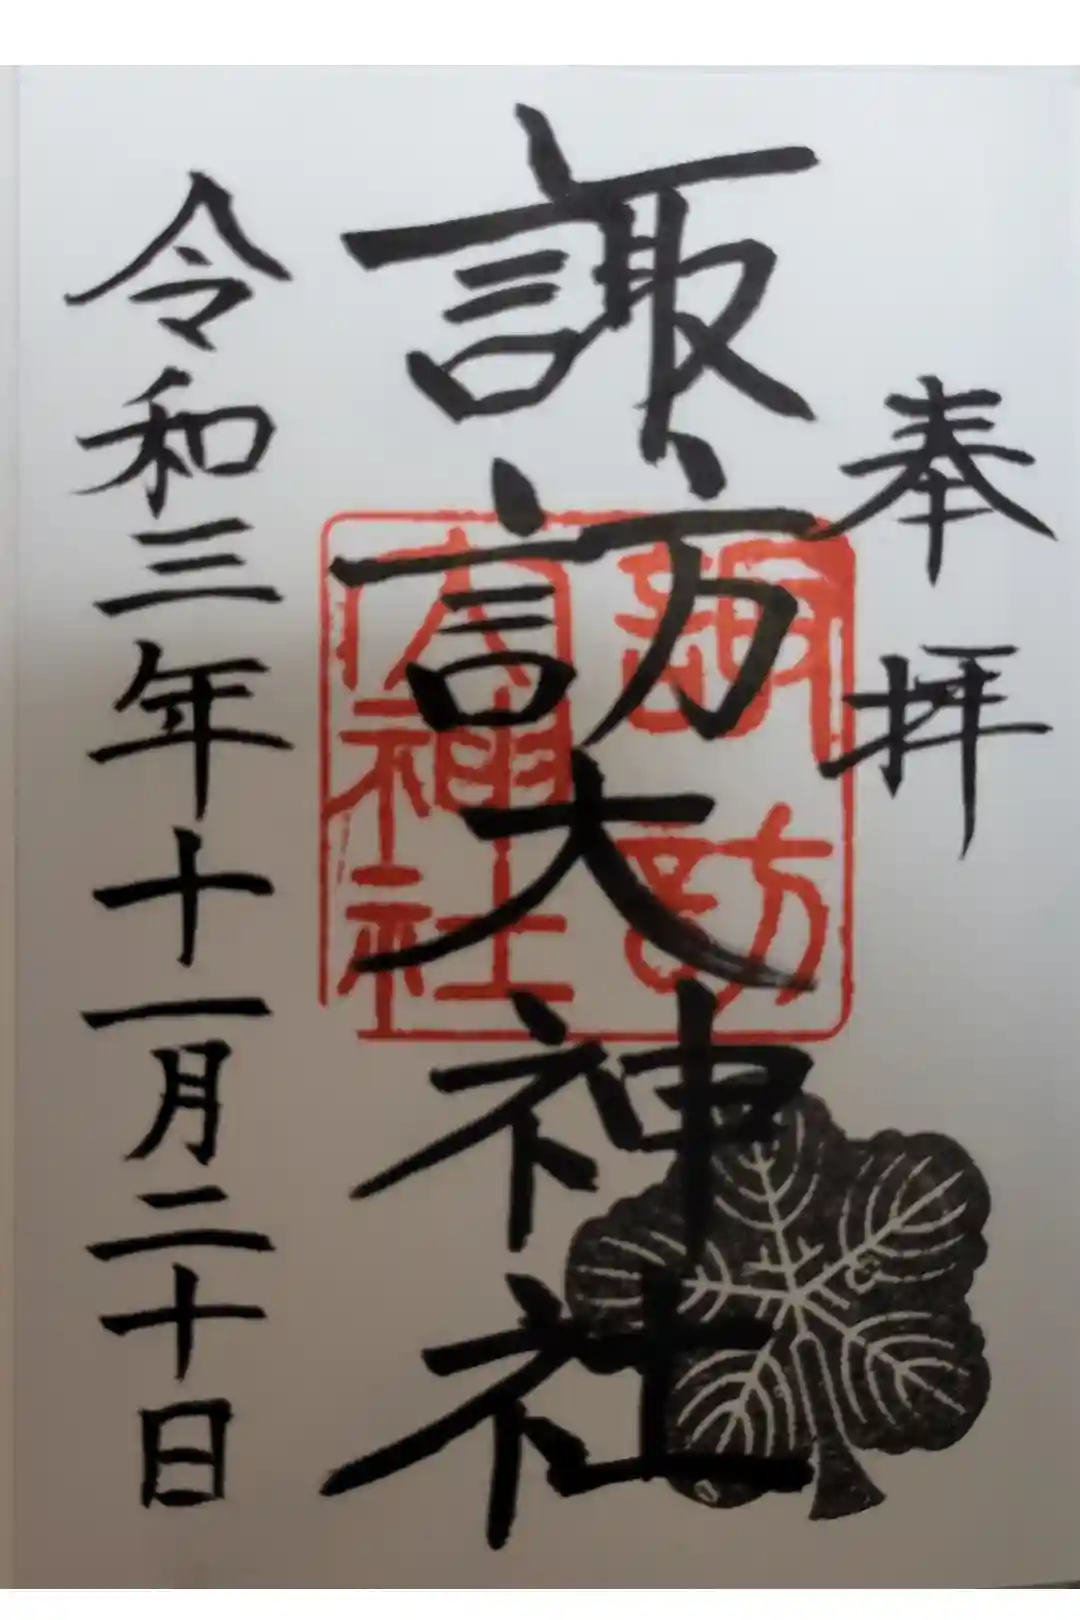 奉拝
諏訪大神社
諏訪
大神社
令和三年十一月二十日